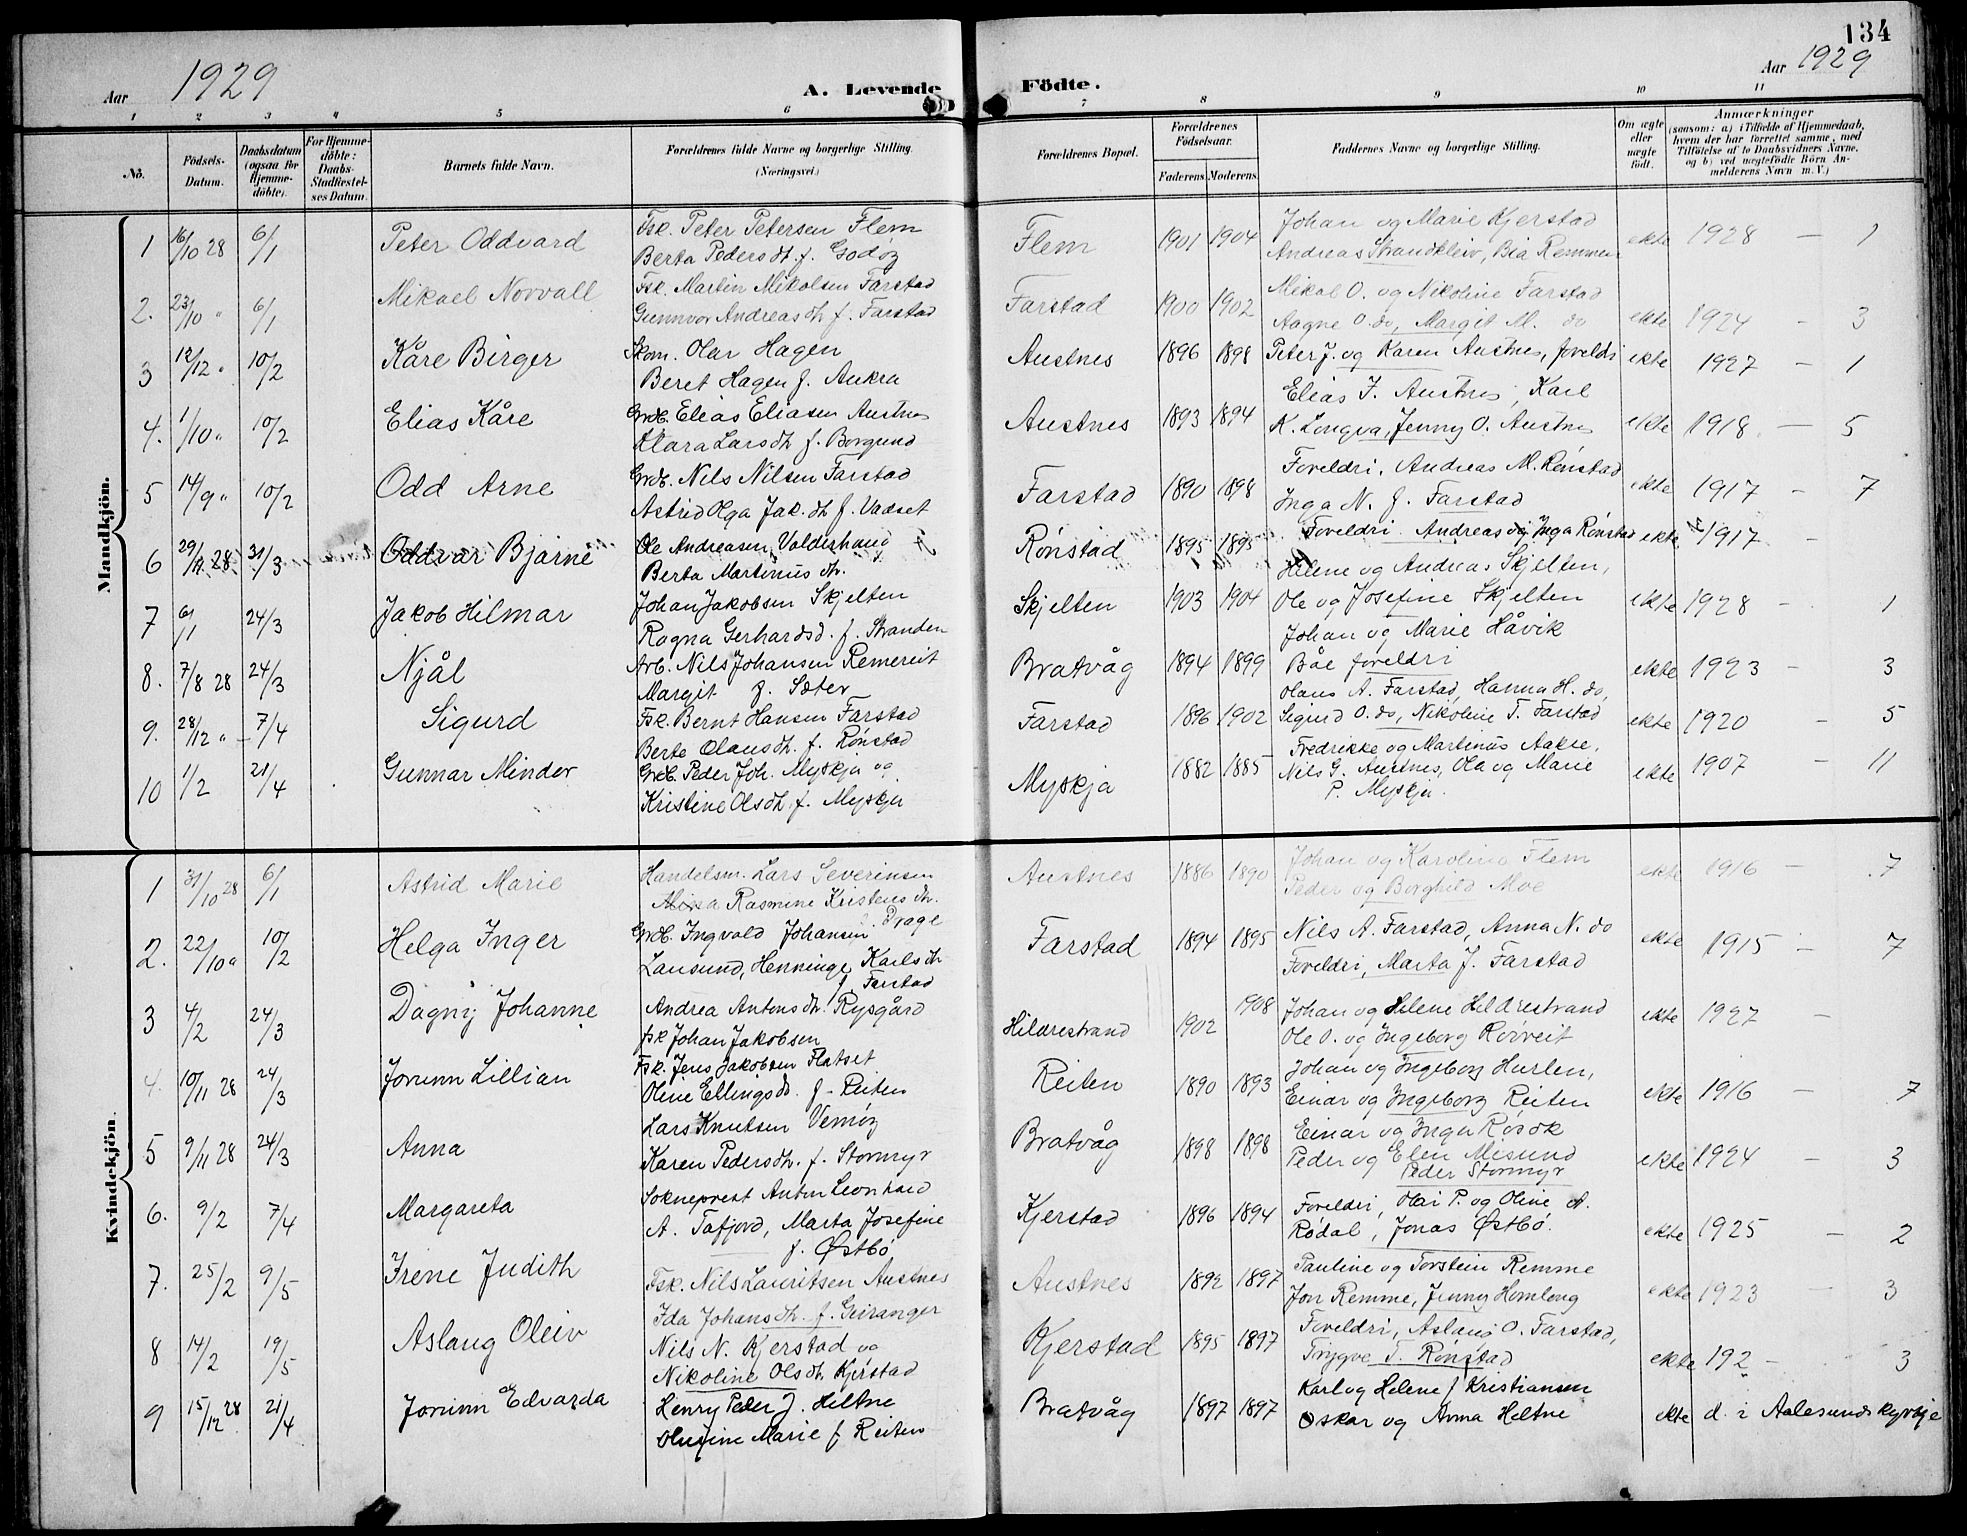 134
Aar 1929
A. Levende Födte.
Aar 1929
1 2 3 4 5 6 7 8 9 10 11
No.
Födsels-Datum.
Daabsdatum (ogsaa for Hjemmedöbte).
For Hjemmedöbte: Daabs-Stadfæstelses Datum.
Barnets fulde Navn.
Forældrenes fulde Navne og borgerlige Stilling. (Næringsvei.)
Forældrenes Bopæl.
Forældrenes Födselsaar.
Faderens Moderens
Faddernes Navne og borgerlige Stilling.
Om ægte eller uægte födt.
Anmærkninger
(saasom: a) i Tilfælde af Hjemmedaab,
hvem der har forrettet samme, med
Tilföielse af to Daabsvidners Navne,
og b) ved uægtefödte Börn An-
melderens Navn m. V.)
Mandkjön.
1 16/10 28 6/1 Peter Oddvard Fsk. Peter Petersen Flem Flem 1901 1904 Johan og Marie Kjerstad ekte 1928 – 1
Berta Pedersdh. f. Godøy Andreas Strandkleiv, Bia Remmen
2. 23/10 " 6/1 Mikael Norvall Fsk. Martin Mikolsen Farstad Farstad 1900 1902 Mikal O. og Nikoline Farstad ekte 1924 – 3
Gunnvor Andreasdh f. Farstad Aagne O. do, Margit M. do
3 12/12 " 10/2 Kåre Birger Skom. Olar Hagen Austnes 1896 1898 Peter J. og Karen Austnes, foreldri ekte 1927 – 1
Beret Hagen f. Aukra
4. 1/10 " 10/2 Elias Kåre Grdb. Elias Eliasen Austnes Austnes 1893 1894 Elias I. Austnes, Karl ekte 1918 – 5
Klara Larsdh f. Borgund K. Longva, Jenny O. Austnes
5 14/9 " 10/2 Odd Arne Grdb. Nils Nilsen Farstad Farstad 1890 1898 Foreldri, Andreas M. Rønstad ekte 1917 – 7
Astrid Olga Jak.dh f. Vadset Inga N. f. Farstad
6 29/11 28 31/3 Oddvar Bjarne Ole Andreasen Valderhaug Rønstad 1895 1895 Foreldri Andreas og Inga Rønstad ekte 1917 –
Berta Martinusdh.
7 6/1 24/3 Jakob Hilmar Johan Jakobsen Skjelten Skjelten 1903 1904 Helene og Andreas Skjelten, ekte 1928 – 1
Ole og Josefine Skjelten
Ragna Gerhardsd. f. Stranden Johan og Marie Håvik
8. 7/8 28 24/3 Njål Arb. Nils Johansen Remereit Bratvåg 1894 1899 Båe foreldri ekte 1923 – 3
Margit f. Sæter
9. 28/12 " 7/4 Sigurd Fsk. Bernt Hansen Farstad Farstad 1896 1902 Olaus A. Farstad, Hanna H. do, ekte 1920 – 5
Sigurd O. do, Nikoline T. Farstad
Berte Olausdh. f. Rønstad
10 1/2 21/4 Gunnar Mindor Grdb. Peder Joh. Myskja og Myskja 1882 1885 Fredrikke og Martinus Aakre, ekte 1907 – 11
Nils G. Austnes, Ola og Marie
Kristine Olsdh. f. Myskja P. Myskja.
Kvindekjön.
1 31/10 28 6/1 Astrid Marie Handelsm. Lars Severinsen Austnes 1886 1890 Johan og Karoline Flem ekte 1916 – 7
Rasmine Kristensdh. f. Drage Peder og Borghild Moe
2. 22/10 " 10/2 Helga Inger Grdb. Ingvald Johansen Farstad 1894 1895 Nils A. Farstad, Anna N. do ekte 1915 – 7
Lausund, Henninge Karlsdh Foreldri, Marta J. Farstad
f. Farstad
3 4/2 24/3 Dagny Johanne Andrea Antonsdh. Rysgård Hildrestrand 1902 1908 Johan og Helene Hildrestrand ekte 1927 –
fsk Johan Jakobsen Ole O. og Ingeborg Rørveit
4. 10/11 28 24/3 Jorunn Lillian Fsk. Jens Jakobsen Flatset Reiten 1890 1893 Johan og Ingeborg Hurlen, ekte 1916 – 7
Oline Ellingsdh. f. Reiten Einar og Ingeborg Reiten
5 9/11 28 24/3 Anna Lars Knutsen Vemøy Bratvåg 1898 1898 Einar og Inga Røsok ekte 1924 – 3
Karen Pedersdh. f. Stormyr Peder og Elen Misund
Peder Stormyr
6. 9/2 7/4 Margareta Sokneprest Anton Leonhard Kjerstad 1896 1894 Foreldri, Olai P. og Oline A. ekte 1925 – 2
A. Tafjord, Marta Josefine Rødal, Jonas Østbø.
f. Østbø
7. 25/2 9/5 Irene Judith Fsk. Nils Lauritsen Austnes Austnes 1892 1897 Pauline og Torstein Remme ekte 1923 – 3
Ida Johansdh. f. Geiranger Jon Remme, Jenny Homlong
8 14/2 19/5 Aslaug Oleiv Nils N. Kjerstad og Kjerstad 1895 1897 Foreldri, Aslaug O. Farstad, ekte 192 – 3
Nikoline Olsdh. Kjerstad Trygve T. Rønstad
9 15/12 28 21/4 Jorunn Edvarda Henry Peder J. Heltne Bratvåg 1897 1897 Karl og Helene J Kristiansen ekte d. i Aalesunds kyrkje
Olufine Marie f. Reiten Oskar og Anna Heltne